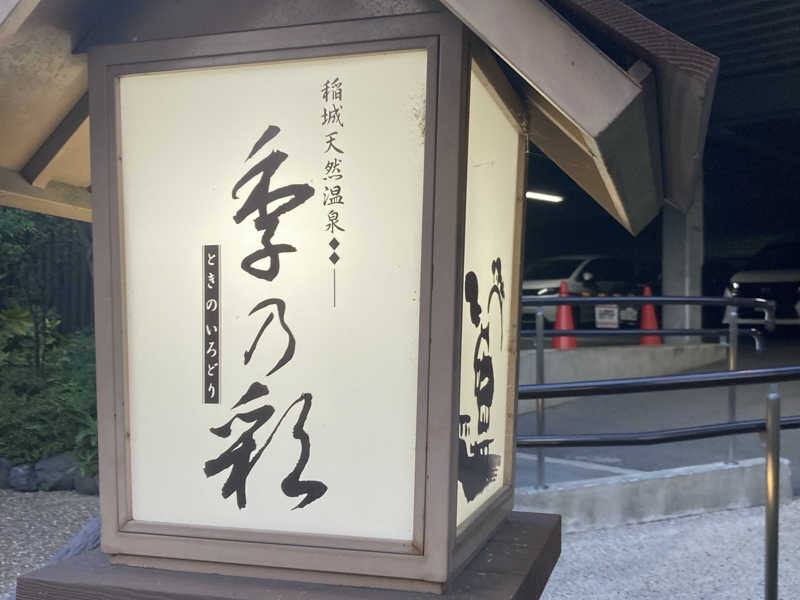 稲城天然温泉
季乃彩
ときのいろどり